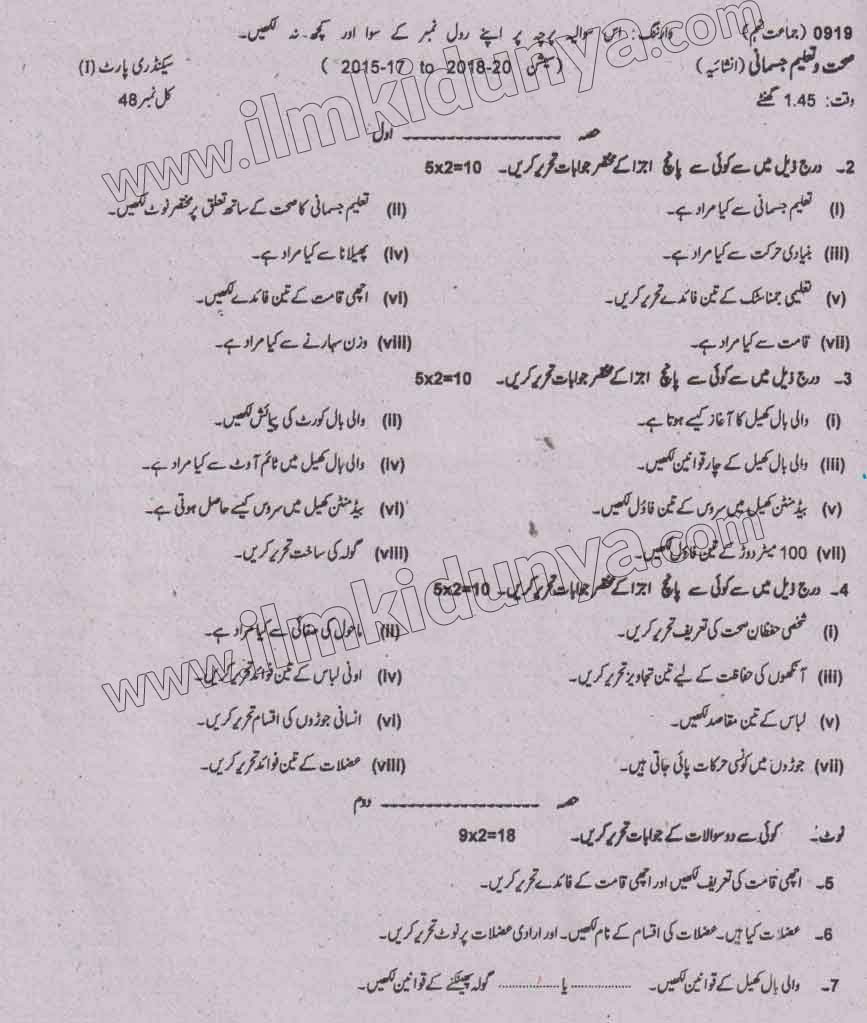 0919 (جماعت نہم) وارننگ: اس سوالیہ پرچہ پر اپنے رول نمبر کے سوا اور کچھ نہ لکھیں۔
صحت و تعلیم جسمانی (انشائیہ) (سیشن 2015-17 to 2018-20) سیکنڈری پارٹ (I)
وقت: 1.45 گھنٹے کل نمبر 48
حصہ ــــــــــــــــــ اول
2۔ درج ذیل میں سے کوئی سے پانچ اجزا کے مختصر جوابات تحریر کریں۔ 5x2=10
(i) تعلیم جسمانی سے کیا مراد ہے۔ (ii) تعلیم جسمانی کا صحت کے ساتھ تعلق پر مختصر نوٹ لکھیں۔
(iii) بنیادی حرکت سے کیا مراد ہے۔ (iv) پھیلانا سے کیا مراد ہے۔
(v) تعلیمی جمناسٹک کے تین فائدے تحریر کریں۔ (vi) اچھی قامت کے تین فائدے لکھیں۔
(vii) قامت سے کیا مراد ہے۔ (viii) وزن سہارنے سے کیا مراد ہے۔
3۔ درج ذیل میں سے کوئی سے پانچ اجزا کے مختصر جوابات تحریر کریں۔ 5x2=10
(i) والی بال کھیل کا آغاز کیسے ہوتا ہے۔ (ii) والی بال کورٹ کی پیمائش لکھیں۔
(iii) والی بال کھیل کے چار قوانین لکھیں۔ (iv) والی بال کھیل میں ٹائم آوٹ سے کیا مراد ہے۔
(v) بیڈمنٹن کھیل میں سروس کے تین فاؤل لکھیں۔ (vi) بیڈمنٹن کھیل میں سروس کیسے حاصل ہوتی ہے۔
(vii) 100 میٹر دوڑ کے تین فاؤل لکھیں۔ (viii) گولہ کی ساخت تحریر کریں۔
4۔ درج ذیل میں سے کوئی سے پانچ اجزا کے مختصر جوابات تحریر کریں۔ 5x2=10
(i) شخصی حفظان صحت کی تعریف تحریر کریں۔ (ii) ماحول کی صفائی سے کیا مراد ہے۔
(iii) آنکھوں کی حفاظت کے لیے تین تجاویز تحریر کریں۔ (iv) اونی لباس کے تین فوائد تحریر کریں۔
(v) لباس کے تین مقاصد لکھیں۔ (vi) انسانی جوڑوں کی اقسام تحریر کریں۔
(vii) جوڑوں میں کونسی حرکات پائی جاتی ہیں۔ (viii) عضلات کے تین فوائد تحریر کریں۔
حصہ ــــــــــــــــــ دوم
نوٹ۔ کوئی سے دو سوالات کے جوابات تحریر کریں۔ 9x2=18
5۔ اچھی قامت کی تعریف لکھیں اور اچھی قامت کے فائدے تحریر کریں۔
6۔ عضلات کیا ہیں۔ عضلات کی اقسام کے نام لکھیں۔ اور ارادی عضلات پر نوٹ تحریر کریں۔
7۔ والی بال کھیل کے قوانین لکھیں۔ .................یا................. گولہ پھینکنے کے قوانین لکھیں۔
www.ilmkidunya.com
www.ilmkidunya.com